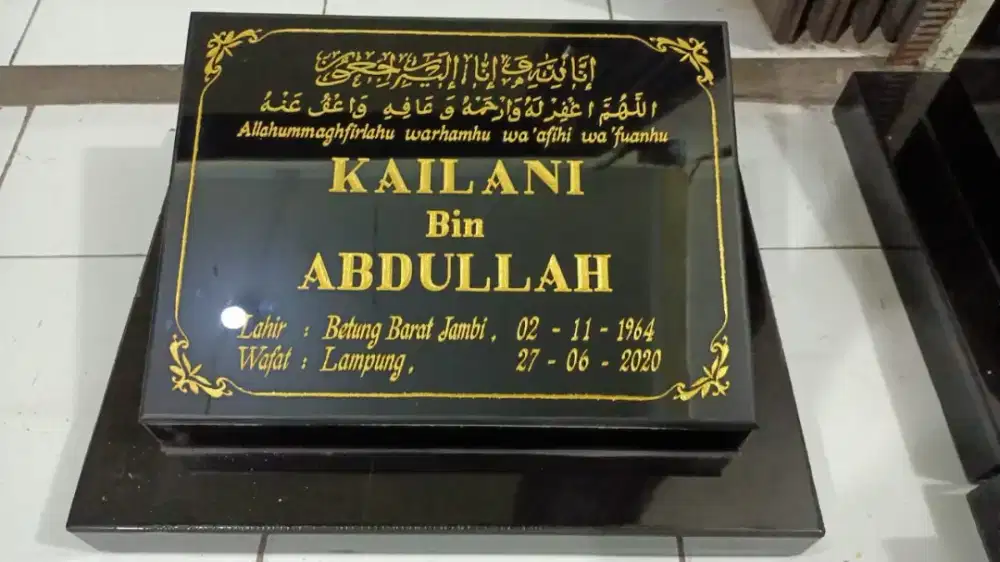 إنا لله وإنا إليه راجعون
اللهم اغفر له وارحمه وعافه واعف عنه
Allahummaghfirlahu warhamhu wa'afihi wa'fuanhu
KAILANI
Bin
ABDULLAH
Lahir : Betung Barat Jambi, 02 - 11 - 1964
Wafat : Lampung, 27 - 06 - 2020